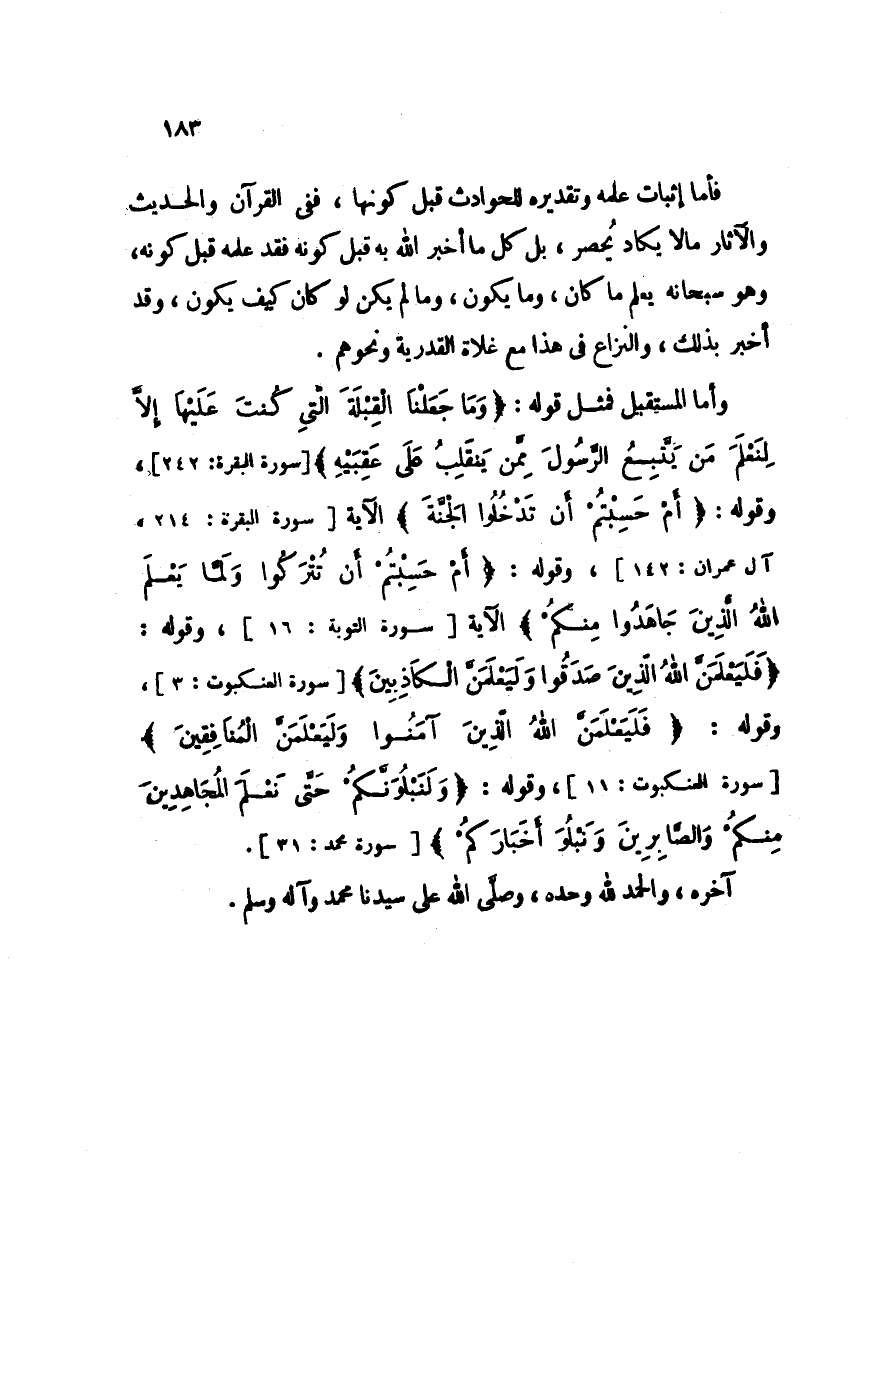 ١٨٣
فأما إثبات علمه وتقديره للحوادث قبل كونها ، ففى القرآن والحديث
والآثار مالا يكاد يُحصر ، بل كل ما أخبر الله به قبل كونه فقد علمه قبل كونه،
وهو سبحانه يعلم ما كان ، وما يكون ، وما لم يكن لو كان كيف يكون ، وقد
أخبر بذلك ، والنزاع فى هذا مع غلاة القدرية ونحوهم .
وأما المستقبل فمثل قوله : ﴿ وَمَا جَعَلْنَا الْقِبْلَةَ الَّتِي كُنتَ عَلَيْهَا إِلاَّ
لِنَعْلَمَ مَن يَتَّبِعُ الرَّسُولَ مِمَّن يَنقَلِبُ عَلَى عَقِبَيْهِ ﴾ [سورة البقرة: ٢٤٢] ،
وقوله : ﴿ أَمْ حَسِبْتُمْ أَن تَدْخُلُوا الْجَنَّةَ ﴾ الآية [ سورة البقرة : ٢١٤ ،
آل عمران : ١٤٢ ] ، وقوله : ﴿ أَمْ حَسِبْتُمْ أَن تُتْرَكُوا وَلَمَّا يَعْلَمِ
اللهُ الَّذِينَ جَاهَدُوا مِنكُمْ ﴾ الآية [ سورة التوبة : ١٦ ] ، وقوله :
﴿ فَلَيَعْلَمَنَّ اللهُ الَّذِينَ صَدَقُوا وَلَيَعْلَمَنَّ الْكَاذِبِينَ ﴾ [ سورة العنكبوت : ٣ ] ،
وقوله : ﴿ فَلَيَعْلَمَنَّ اللهُ الَّذِينَ آمَنُوا وَلَيَعْلَمَنَّ الْمُنَافِقِينَ ﴾
[ سورة العنكبوت : ١١ ] ، وقوله : ﴿ وَلَنَبْلُوَنَّكُمْ حَتَّى نَعْلَمَ الْمُجَاهِدِينَ
مِنكُمْ وَالصَّابِرِينَ وَنَبْلُوَ أَخْبَارَكُمْ ﴾ [ سورة محمد : ٣١ ] .
آخره ، والحمد لله وحده ، وصلَّى الله على سيدنا محمد وآله وسلم .